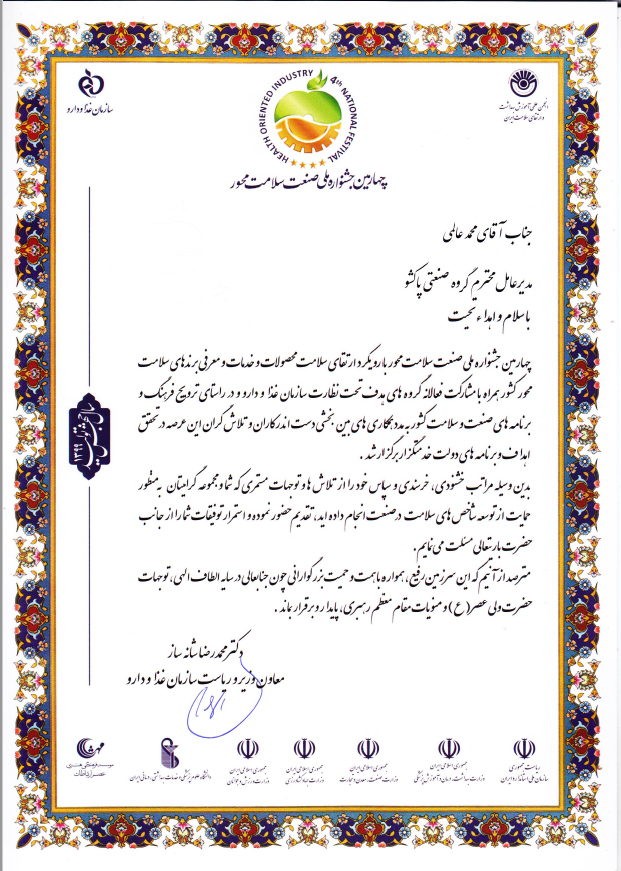 HEALTH ORIENTED INDUSTRY 4th NATIONAL FESTIVAL
سازمان غذا و دارو
انجمن علمی آموزش بهداشت
و ارتقای سلامت ایران
چهارمین جشنواره ملی صنعت سلامت محور
جناب آقای محمد عالمی
مدیرعامل محترم گروه صنعتی پاکشو
با سلام و اهداء تحیت
چهارمین جشنواره ملی صنعت سلامت محور با رویکرد ارتقای سلامت محصولات و خدمات و معرفی برندهای سلامت
محور کشور همراه با مشارکت فعالانه گروه های هدف تحت نظارت سازمان غذا و دارو و در راستای ترویج فرهنگ و
برنامه های صنعت و سلامت کشور به مدد همکاری های بین بخشی دست اندرکاران و تلاش گران این عرصه در تحقق
اهداف و برنامه های دولت خدمتگزار برگزار شد.
بدین وسیله مراتب خشنودی، خرسندی و سپاس خود را از تلاش ها و توجهات مستمری که شما و مجموعه گرامیتان به منظور
حمایت از توسعه شاخص های سلامت در صنعت انجام داده اید، تقدیم حضور نموده و استمرار توفیقات شما را از جانب
حضرت باریتعالی مسئلت می نمایم.
مترصد از آنیم که این سرزمین رفیع، همواره با همت و حمیت بزرگوارانی چون جنابعالی در سایه الطاف الهی، توجهات
حضرت ولی عصر (ع) و منویات مقام معظم رهبری، پایدار و برقرار بماند.
سال جهش تولید
۱۳۹۹
دکتر محمدرضا شانه ساز
معاون وزیر و ریاست سازمان غذا و دارو
ریاست جمهوری
سازمان ملی استاندارد ایران
جمهوری اسلامی ایران
وزارت بهداشت، درمان و آموزش پزشکی
جمهوری اسلامی ایران
وزارت صنعت، معدن و تجارت
جمهوری اسلامی ایران
وزارت جهاد کشاورزی
جمهوری اسلامی ایران
وزارت ورزش و جوانان
دانشگاه علوم پزشکی و خدمات بهداشتی درمانی ایران
مهشا
موسسه فرهنگی هنری
عصر ارتباطات